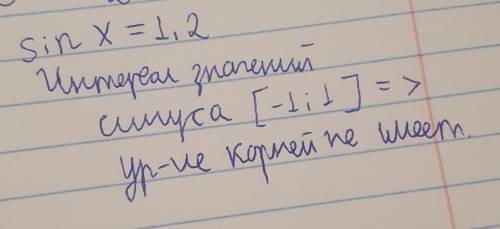 sin x = 1,2
Интервал значений
синуса [-1;1] =>
ур-ие корней не имеет.